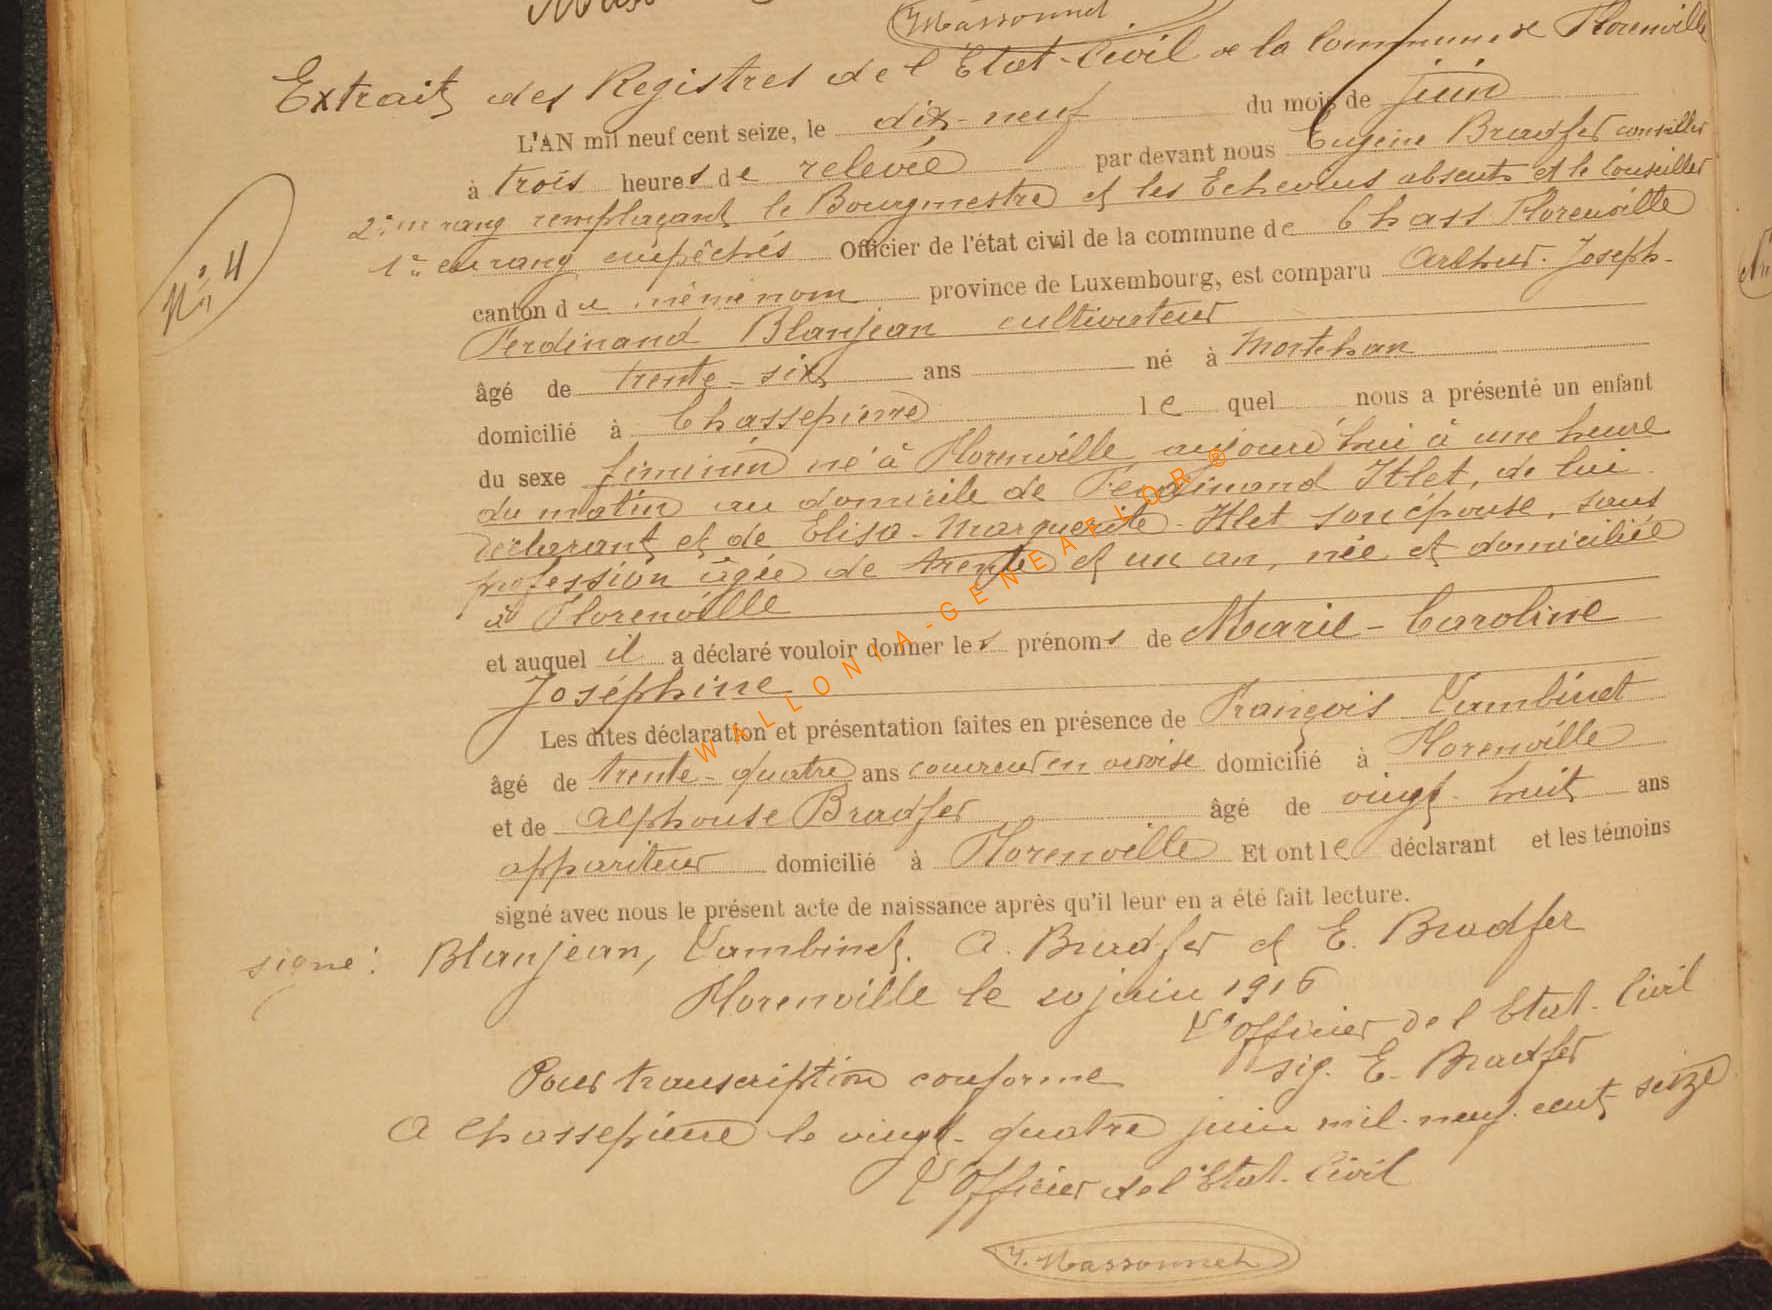 J. Massonnet
Extrait des Registres de l'Etat-Civil de la Commune de Florenville
L'AN mil neuf cent seize, le dix-neuf du mois de juin
à trois heures de relevée par devant nous Eugène Bradfer conseiller
2e en rang remplaçant le Bourgmestre et les Echevins absents et le Conseiller
1er en rang empêchés Officier de l'état civil de la commune de Florenville
canton de même nom province de Luxembourg, est comparu Arthur-Joseph-
Ferdinand Blanjean cultivateur
âgé de trente-six ans né à Mortehan
domicilié à Chassepierre lequel nous a présenté un enfant
du sexe féminin né à Florenville aujourd'hui à une heure
du matin au domicile de Ferdinand Itlet, de lui
déclarant et de Elisa-Marguerite Itlet son épouse, sans
profession âgée de trente et un an, née et domiciliée
à Florenville
et auquel il a déclaré vouloir donner les prénoms de Marie-Caroline
Joséphine
Les dites déclaration et présentation faites en présence de François Lambinet
âgé de trente-quatre ans couvreur en ardoise domicilié à Florenville
et de Alphonse Bradfer âgé de vingt-huit ans
appariteur domicilié à Florenville Et ont le déclarant et les témoins
signé avec nous le présent acte de naissance après qu'il leur en a été fait lecture.
signé: Blanjean, Lambinet. A. Bradfer et E. Bradfer
Florenville le 20 juin 1916
L'Officier de l'Etat-Civil
sig. E. Bradfer
Pour transcription conforme
A Chassepierre le vingt-quatre juin mil-neuf-cent-seize
L'Officier de l'Etat-Civil
J. Massonnet
N° 4
WALLONIA-GENEAFLOR®